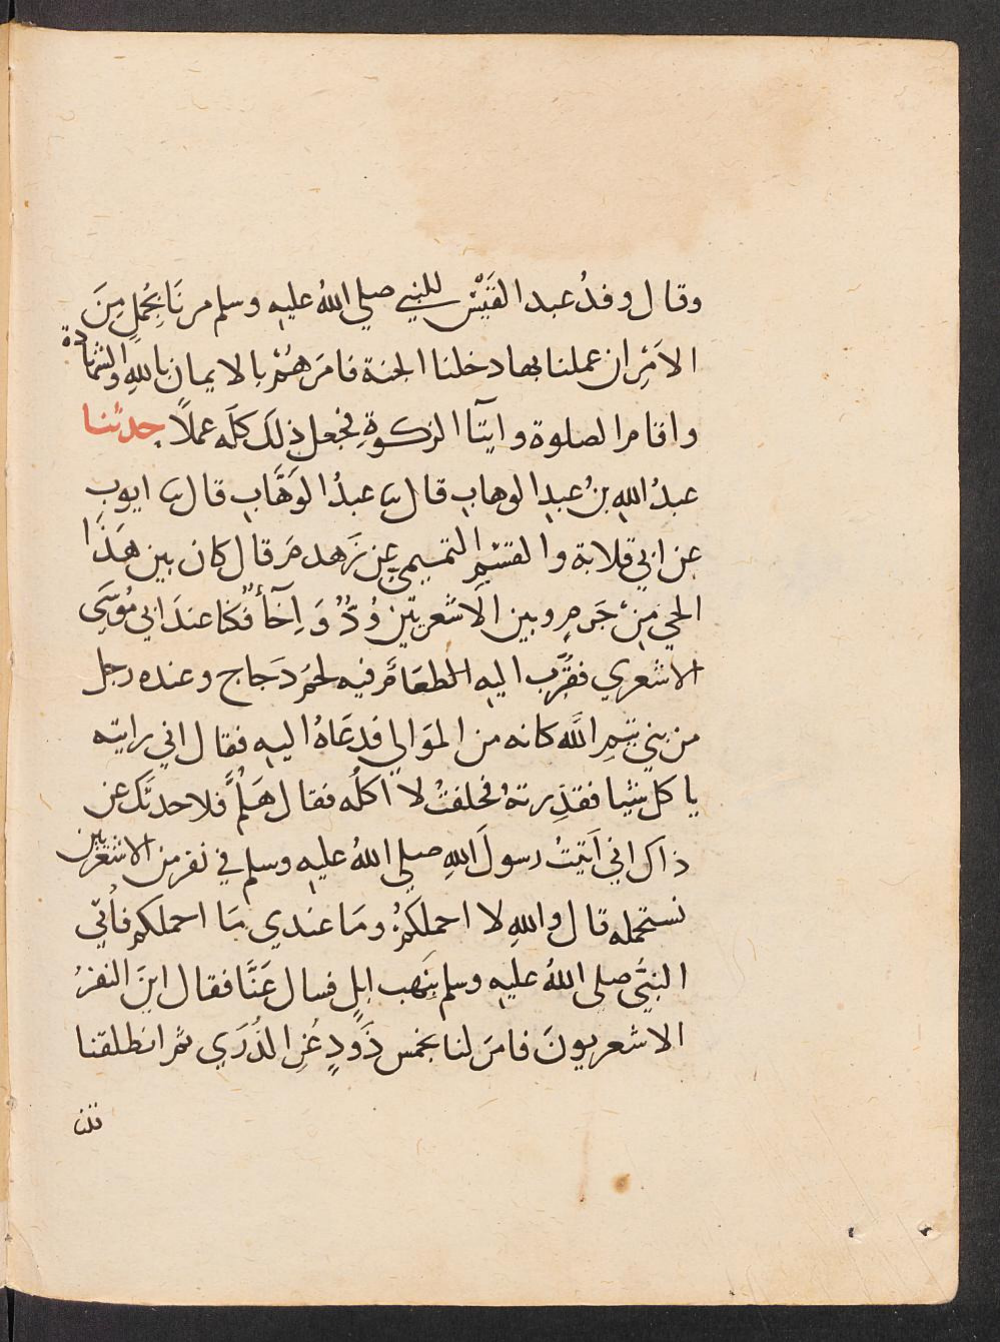 وقال وفدُ عبد القَيْس للنبي صلي اللهُ عليه وسلم مرنَا بِجُمَلٍ مِنَ
الاَمْرِ ان عملنا بها دخلنا الجنة فامَرهُمْ بالايمان باللهِ والشهادة
واقام الصلوة وايتآ الزكوةِ فجعل ذلك كلَه عملًا حدثنا
عبدُ اللهِ بنُ عبدِ الوهابِ قال نا عبدُ الوَهَّابِ قال نا ايوب
عن ابي قلابة والقسْمِ التميمي عن زَهدمَ قال كان بين هَذَا
الحي مِنْ جَرمٍ وبين الَاشعريين وُدٌّ وَاِخَآءٌ فكنا عندَ ابي مُوسَي
الاشعري فقُرِّب اليه الطعَامُ فيه لحمُ دَجاج وعنده رجل
من بني تيمِ اللَّه كانه من الموَالي فدعَاهُ اليه فقال اني رايته
ياكل شيا فقذِرتهُ فحلفتُ لا اكلُه فقال هَلُمَّ فلاحدثَك عن
ذاك اني اَتيتُ رسولَ اللهِ صلي اللهُ عليه وسلم في نفر من الاشعريين
نستحمله قال واللهِ لا احملكُمْ ومَا عندي مَا احملكم فاُتي
النبيُّ صلي اللهُ عليه وسلم بنَهب ابلٍ فسال عَنَّا فقال اينَ النفرُ
الاشعريونَ فامَر لنا بخمس ذَودٍ غُرِ الذُرَي ثم انطلقنا
قلنا